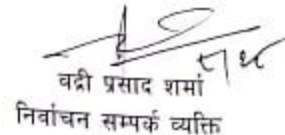 वद्री प्रसाद शर्मा
निर्वाचन सम्पर्क व्यक्ति